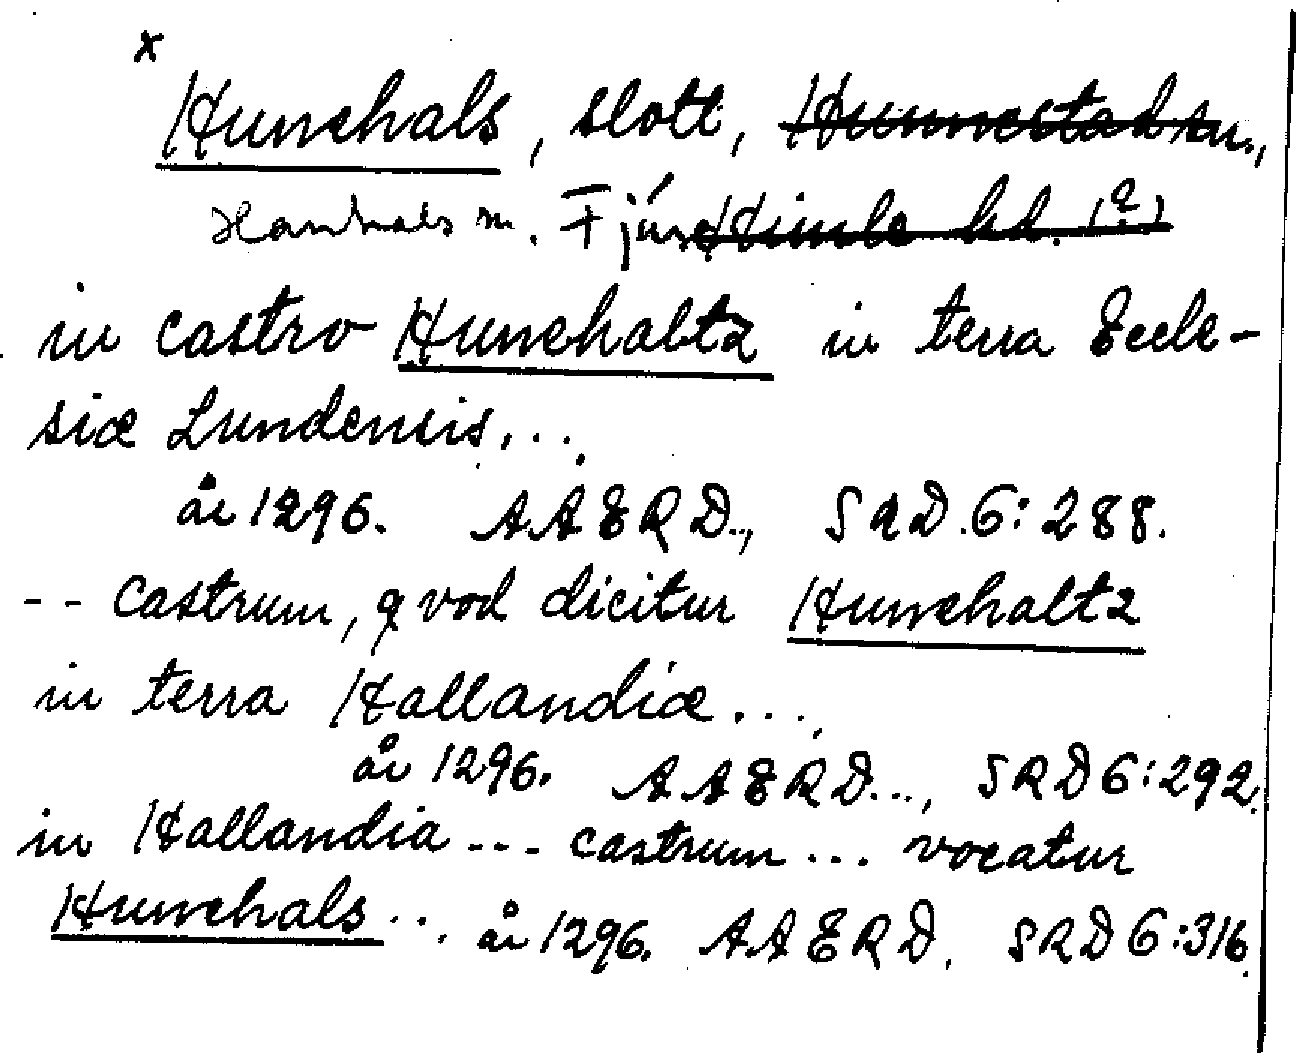 x
Hunehals, slott, Hunnestad sn.,
Hanhals sn. Fjäre Himle hd. (?)
in castro Hunehaltz in terra Eccle-
siæ Lundensis...
år 1296. AAERD., SRD.6:288.
-- Castrum, qvod dicitur Hunehaltz
in terra Hallandiæ...
år 1296. AAERD..., SRD 6:292.
in Hallandia --- castrum... vocatur
Hunehals... år 1296. AAERD. SRD 6:316.